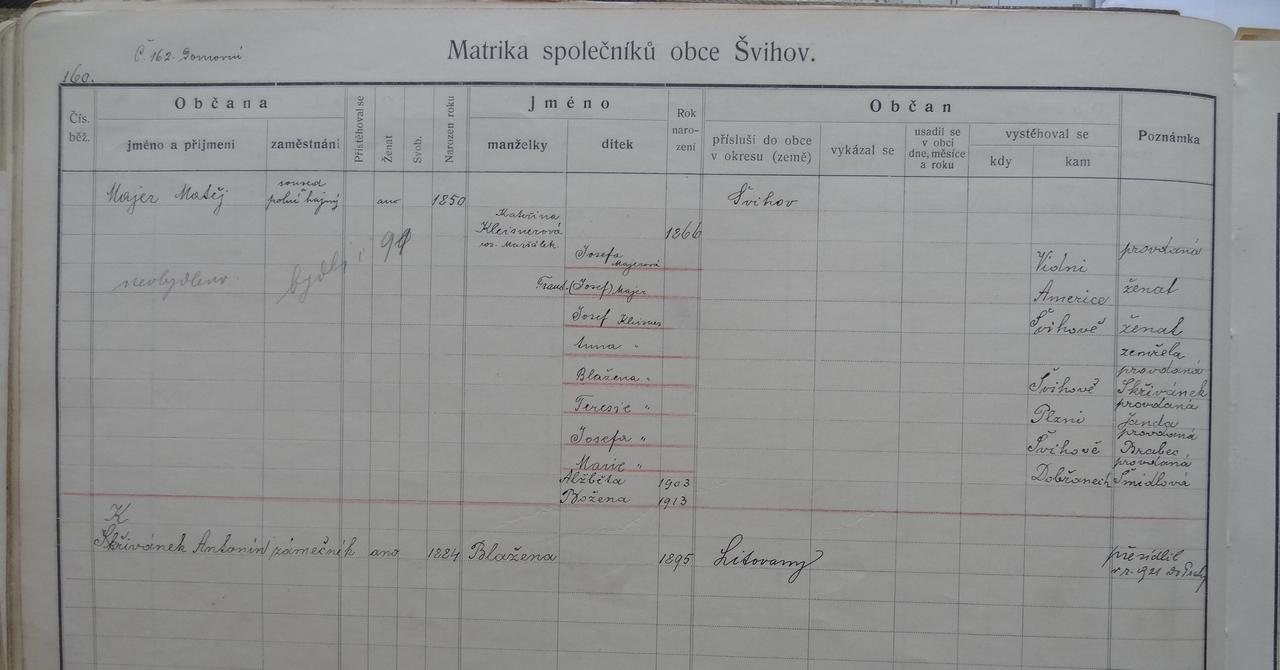 Č. 162. Domovní
Matrika společníků obce Švihov.
160.
Čís. běž.
Občana
jméno a příjmení
zaměstnání
Přistěhoval se
Ženat
Svob.
Narozen roku
Jméno
manželky
dítek
Rok naro- zení
Občan
přísluší do obce v okresu (země)
vykázal se
usadil se v obci dne, měsíce a roku
vystěhoval se
kdy
kam
Poznámka
Majer Matěj
soused
polní hajný
ano
1850
Švihov
Kateřina
Kleisnerová
roz. Maršálek
1266
neobydleno
bydlí
Josefa
Majerová
Vídni
provdaná
Frant. (Josef) Majer
Americe
ženat
Josef Kleisner
Švihově
ženat
Anna "
zemřela
Blažena "
Švihově
provdaná
Skřivánek
Teresie "
Plzni
provdaná
Janda
Josefa "
Švihově
provdaná
Brabec
Marie "
Dobřanech
provdaná
Šmidlová
Alžběta 1903
Božena 1913
K
Skřivánek Antonín
zámečník
ano
1884
Blažena
1895
Litovany
přesídlil
v r. 1921 do Prahy